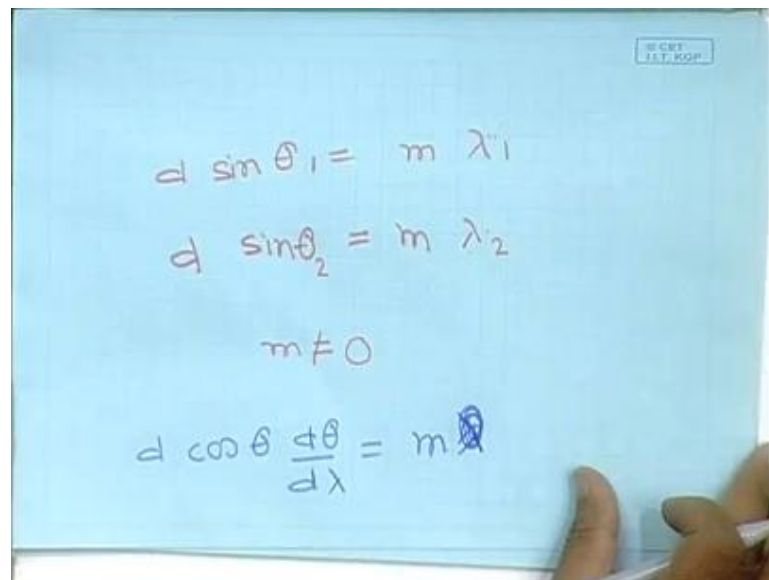 © CET
I.I.T. KGP
d sin θ₁ = m λ₁
d sin θ₂ = m λ₂
m ≠ 0
d cos θ dθ/dλ = m